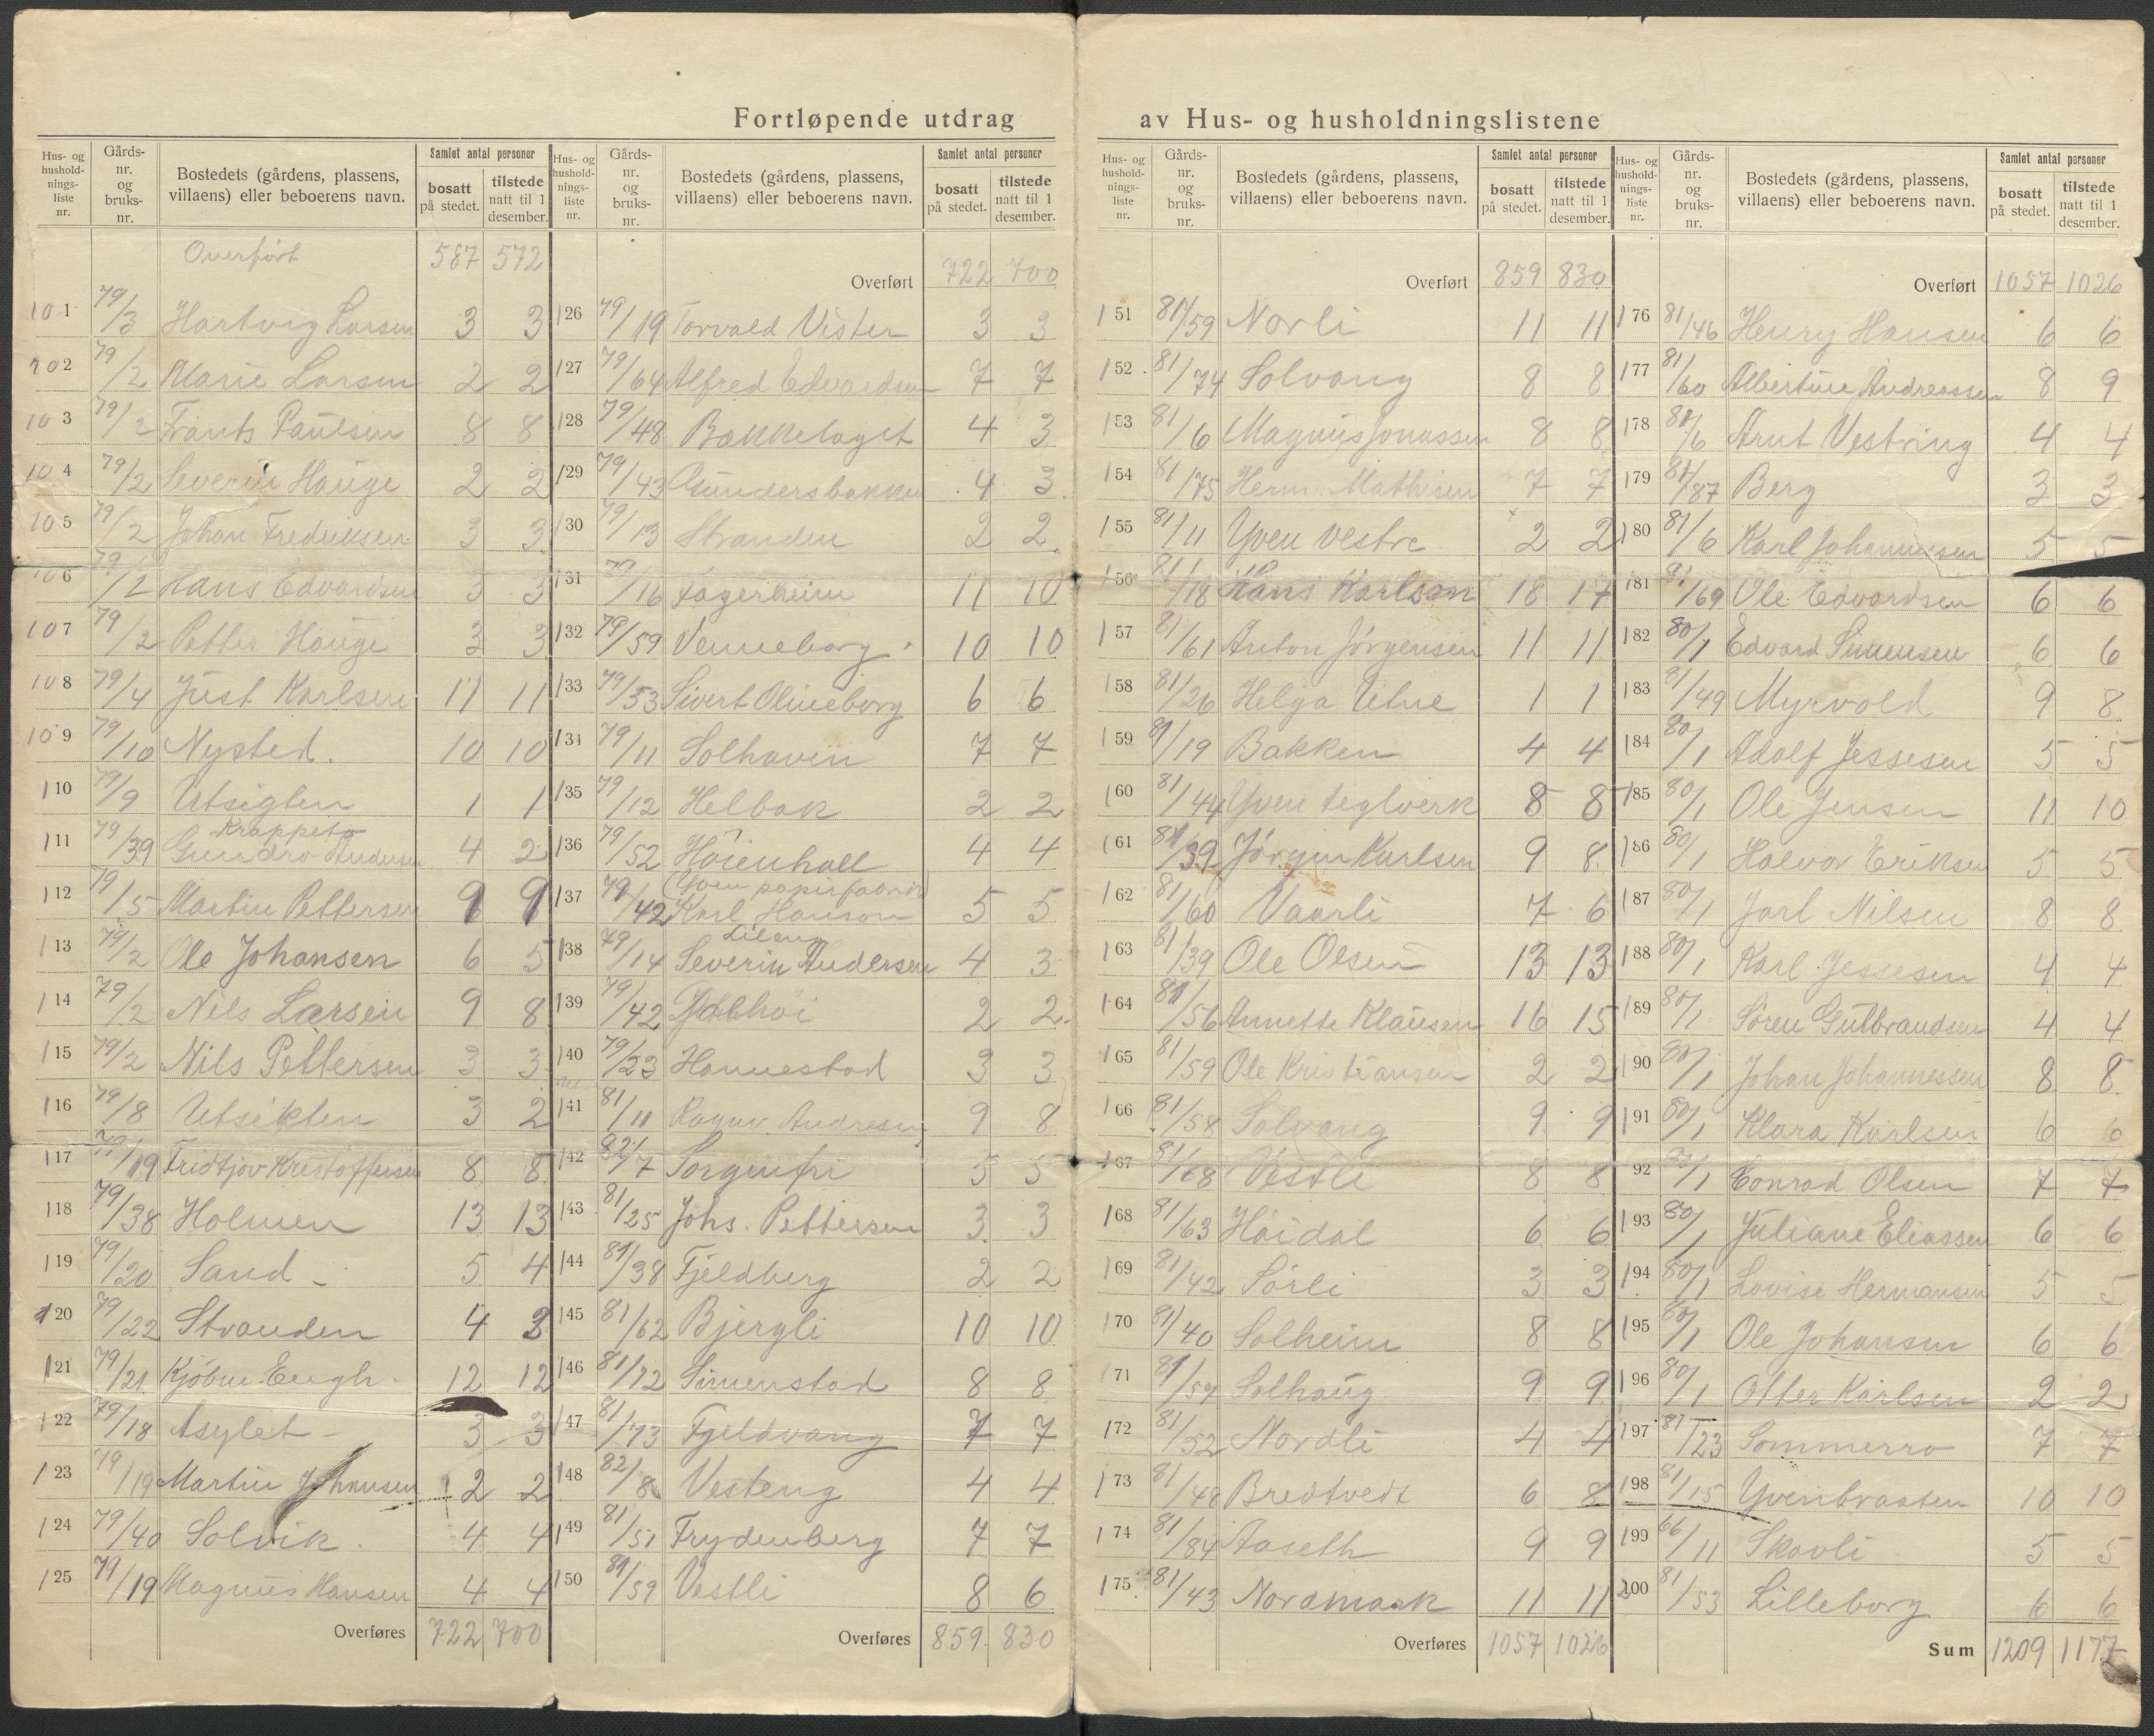 Fortløpende utdrag av Hus- og husholdningslistene
Hus- og hushold-nings-liste nr. | Gårds-nr. og bruks-nr. | Bostedets (gårdens, plassens, villaens) eller beboerens navn. | Samlet antal personer | bosatt på stedet. | tilstede natt til 1 desember.
Overført 587 572
101 79/3 Hartvig Larsen 3 3
102 79/2 Marie Larsen 2 2
103 79/2 Frants Paulsen 8 8
104 79/2 Severin Hauge 2 2
105 79/2 Johan Fredriksen 3 3
106 79/2 Hans Edvardsen 3 3
107 79/2 Petter Hauge 3 3
108 79/4 Just Karlsen 11 11
109 79/10 Nysted. 10 10
110 79/9 Utsigten 1 1
111 79/39 Krappetø Gundro Andersen 4 2
112 79/5 Martin Pettersen 9 9
113 79/2 Ole Johansen 6 5
114 79/2 Nils Larsen 9 8
115 79/2 Nils Pettersen 3 3
116 79/8 Utsikten 3 2
117 79/19 Fridtjov Kristoffersen 8 8
118 79/38 Holmen 13 13
119 79/20 Sand 5 4
120 79/22 Stranden 4 3
121 79/21 Kjøbm. Engh. 12 12
122 79/18 Asylet 3 3
123 79/19 Martin Johansen 2 2
124 79/40 Solvik. 4 4
125 79/19 Magnus Hansen 4 4
Overføres 722 700
Hus- og hushold-nings-liste nr. | Gårds-nr. og bruks-nr. | Bostedets (gårdens, plassens, villaens) eller beboerens navn. | Samlet antal personer | bosatt på stedet. | tilstede natt til 1 desember.
Overført 722 700
126 79/19 Torvald Vister 3 3
127 79/64 Alfred Edvardsen 7 7
128 79/48 Bakkelaget 4 3
129 79/43 Gundersbakken 4 3
130 79/13 Stranden 2 2
131 79/16 Fagerheim 11 10
132 79/59 Venneborg 10 10
133 79/53 Sivert Olineborg 6 6
134 79/11 Solhaven 7 7
135 79/12 Helbak 2 2
136 79/52 Høienhall 4 4
137 79/42 (Yven papirfabrik) Karl Hanson 5 5
138 79/14 Lileng Severin Andersen 4 3
139 79/42 2 2
140 79/23 Hannestad 3 3
141 81/10 Ragnv. Andresen 9 8
142 82/7 Sorgenfri 5 5
143 81/25 Johs. Pettersen 3 3
144 81/38 Fjeldberg 2 2
145 81/62 Bjergli 10 10
146 81/72 Simenstad 8 8
147 81/73 Fjeldvang 7 7
148 82/8 Vesteng 4 4
149 81/51 Frydenberg 7 7
150 81/59 Vestli 8 6
Overføres 859 830
Hus- og hushold-nings-liste nr. | Gårds-nr. og bruks-nr. | Bostedets (gårdens, plassens, villaens) eller beboerens navn. | Samlet antal personer | bosatt på stedet. | tilstede natt til 1 desember.
Overført 859 830
151 81/59 Norli 11 11
152 81/74 Solvang 8 8
153 81/6 Magnus Jonassen 8 8
154 81/75 Herm. Mathisen 7 7
155 81/11 Yven vestre 2 2
156 81/18 Hans Karlsen 18 17
157 81/61 Anton Jørgensen 11 11
158 81/26 Helga Utne 1 1
159 81/19 Bakken 4 4
160 81/44 Yven teglverk 8 8
161 81/39 Jørgen Karlsen 9 8
162 81/60 Vaarli 7 6
163 81/39 Ole Olsen 13 13
164 81/56 Annette Klausen 16 15
165 81/59 Ole Kristiansen 2 2
166 81/58 Solvang 9 9
167 81/68 Vestli 8 8
168 81/63 Høidal 6 6
169 81/42 Sørli 3 3
170 81/40 Solheim 8 8
171 81/57 Solhaug 9 9
172 81/52 Nordli 4 4
173 81/48 Bredtvedt 6 8
174 81/84 Aaseth 9 9
175 81/43 Nordmark 11 11
Overføres 1057 1026
Hus- og hushold-nings-liste nr. | Gårds-nr. og bruks-nr. | Bostedets (gårdens, plassens, villaens) eller beboerens navn. | Samlet antal personer | bosatt på stedet. | tilstede natt til 1 desember.
Overført 1057 1026
176 81/46 Henry Hansen 6 6
177 81/60 Albertine Andreassen 8 9
178 81/6 Arnt Vestring 4 4
179 81/87 Berg 3 3
180 81/6 Karl Johannesen 5 5
181 81/69 Ole Edvardsen 6 6
182 80/1 Edvard Simensen 6 6
183 81/49 Myrvold 9 8
184 80/1 Adolf Jessesen 5 5
185 80/1 Ole Jensen 11 10
186 80/1 Halvor Eriksen 5 5
187 80/1 Jarl Nilsen 8 8
188 80/1 Karl Jessesen 4 4
189 80/1 Søren Gulbrandsen 4 4
190 80/1 Johan Johannessen 8 8
191 80/1 Klara Karlsen 6 6
192 80/1 Conrad Olsen 7 7
193 80/1 Juliane Eliassen 6 6
194 80/1 Lovise Hermansen 5 5
195 80/1 Ole Johansen 6 6
196 80/1 Otter Karlsen 2 2
197 81/23 Sommerro 7 7
198 81/15 Yvenbraaten 10 10
199 66/11 Skovli 5 5
200 81/53 Lilleborg 6 6
Sum 1209 1177